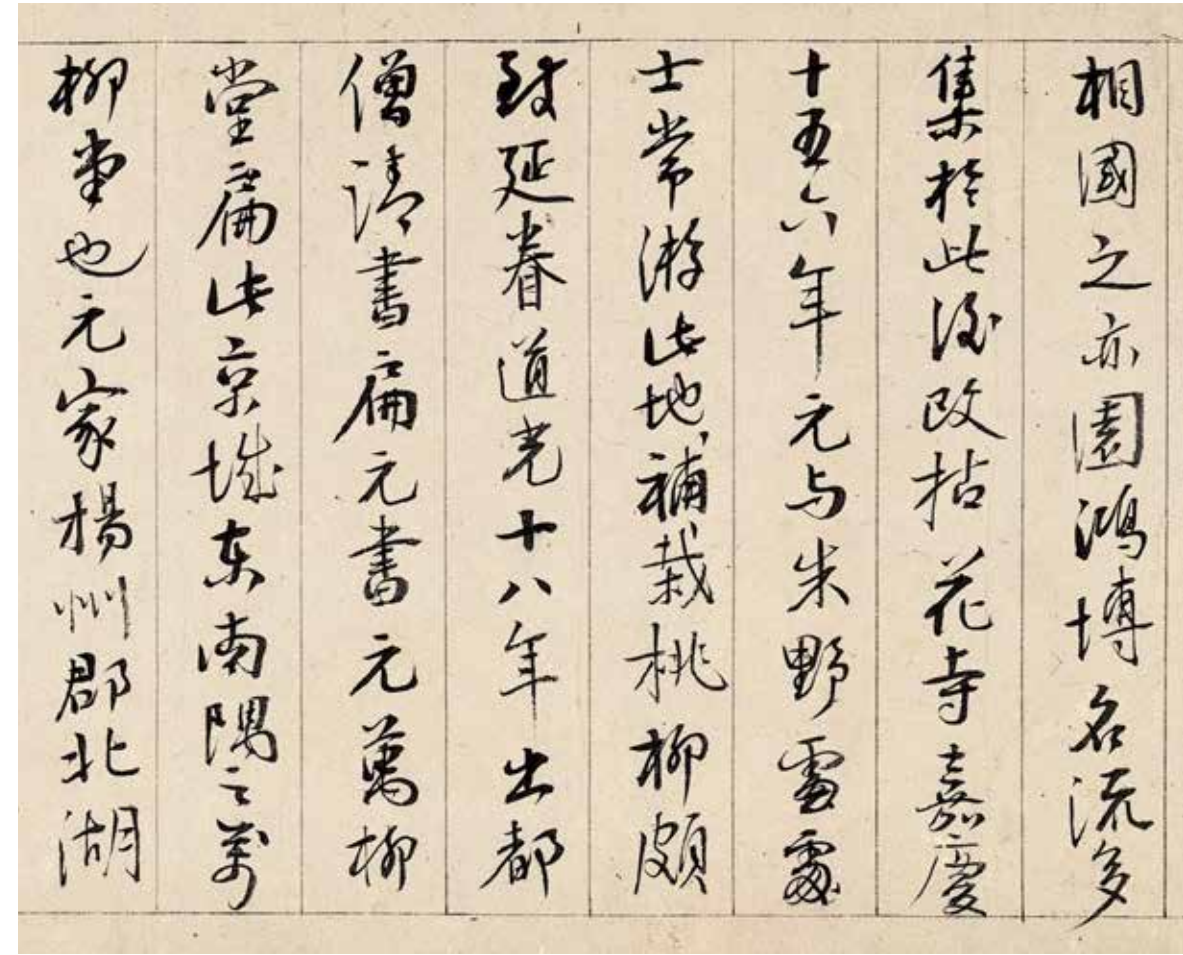 相國之亦園鴻博名流多
集於此後改拈花寺嘉慶
十五六年元与朱野雲處
士常游此地補栽桃柳頗
致延眷道光十八年出都
僧請書扁元書元萬柳
堂扁此京城東南隅之万
柳堂也元家揚州郡北湖